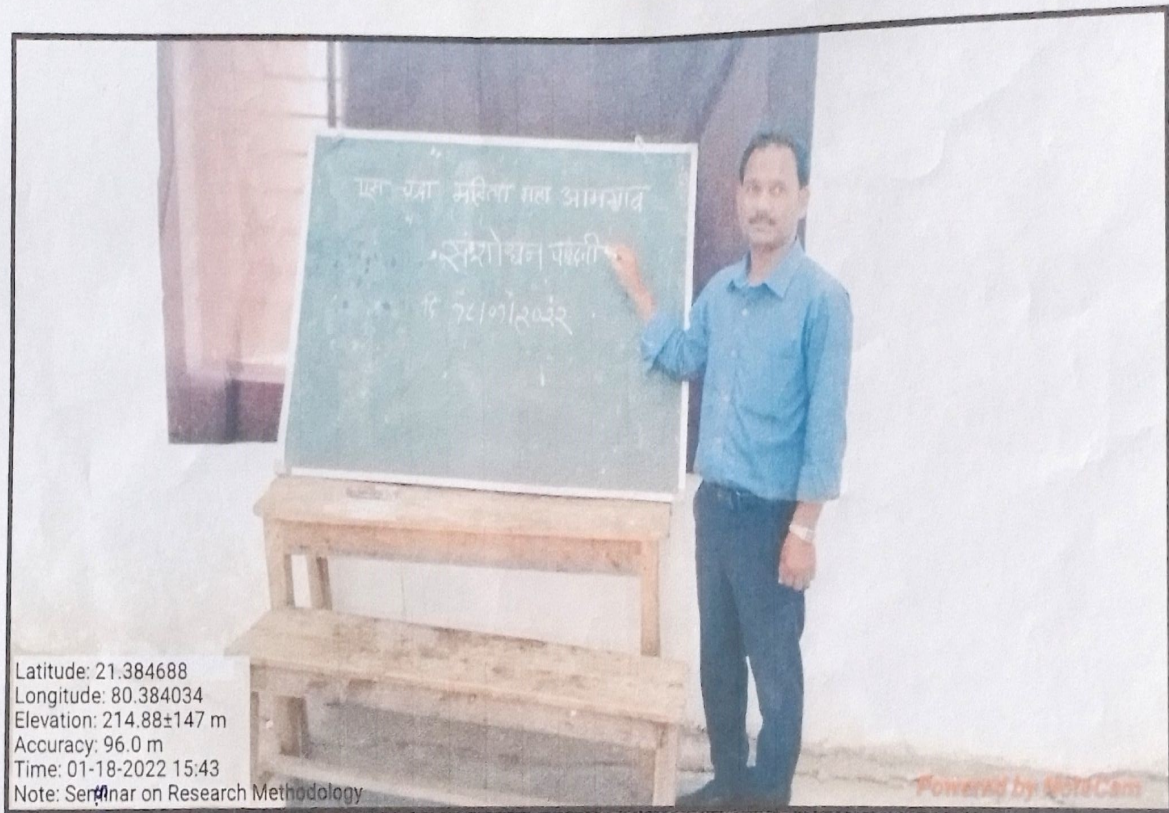 महिला महा आमगाव
संशोधन पद्धती
१८/०१/२०२२
Latitude: 21.384688
Longitude: 80.384034
Elevation: 214.88±147 m
Accuracy: 96.0 m
Time: 01-18-2022 15:43
Note: Seminar on Research Methodology
Powered by NoteCam